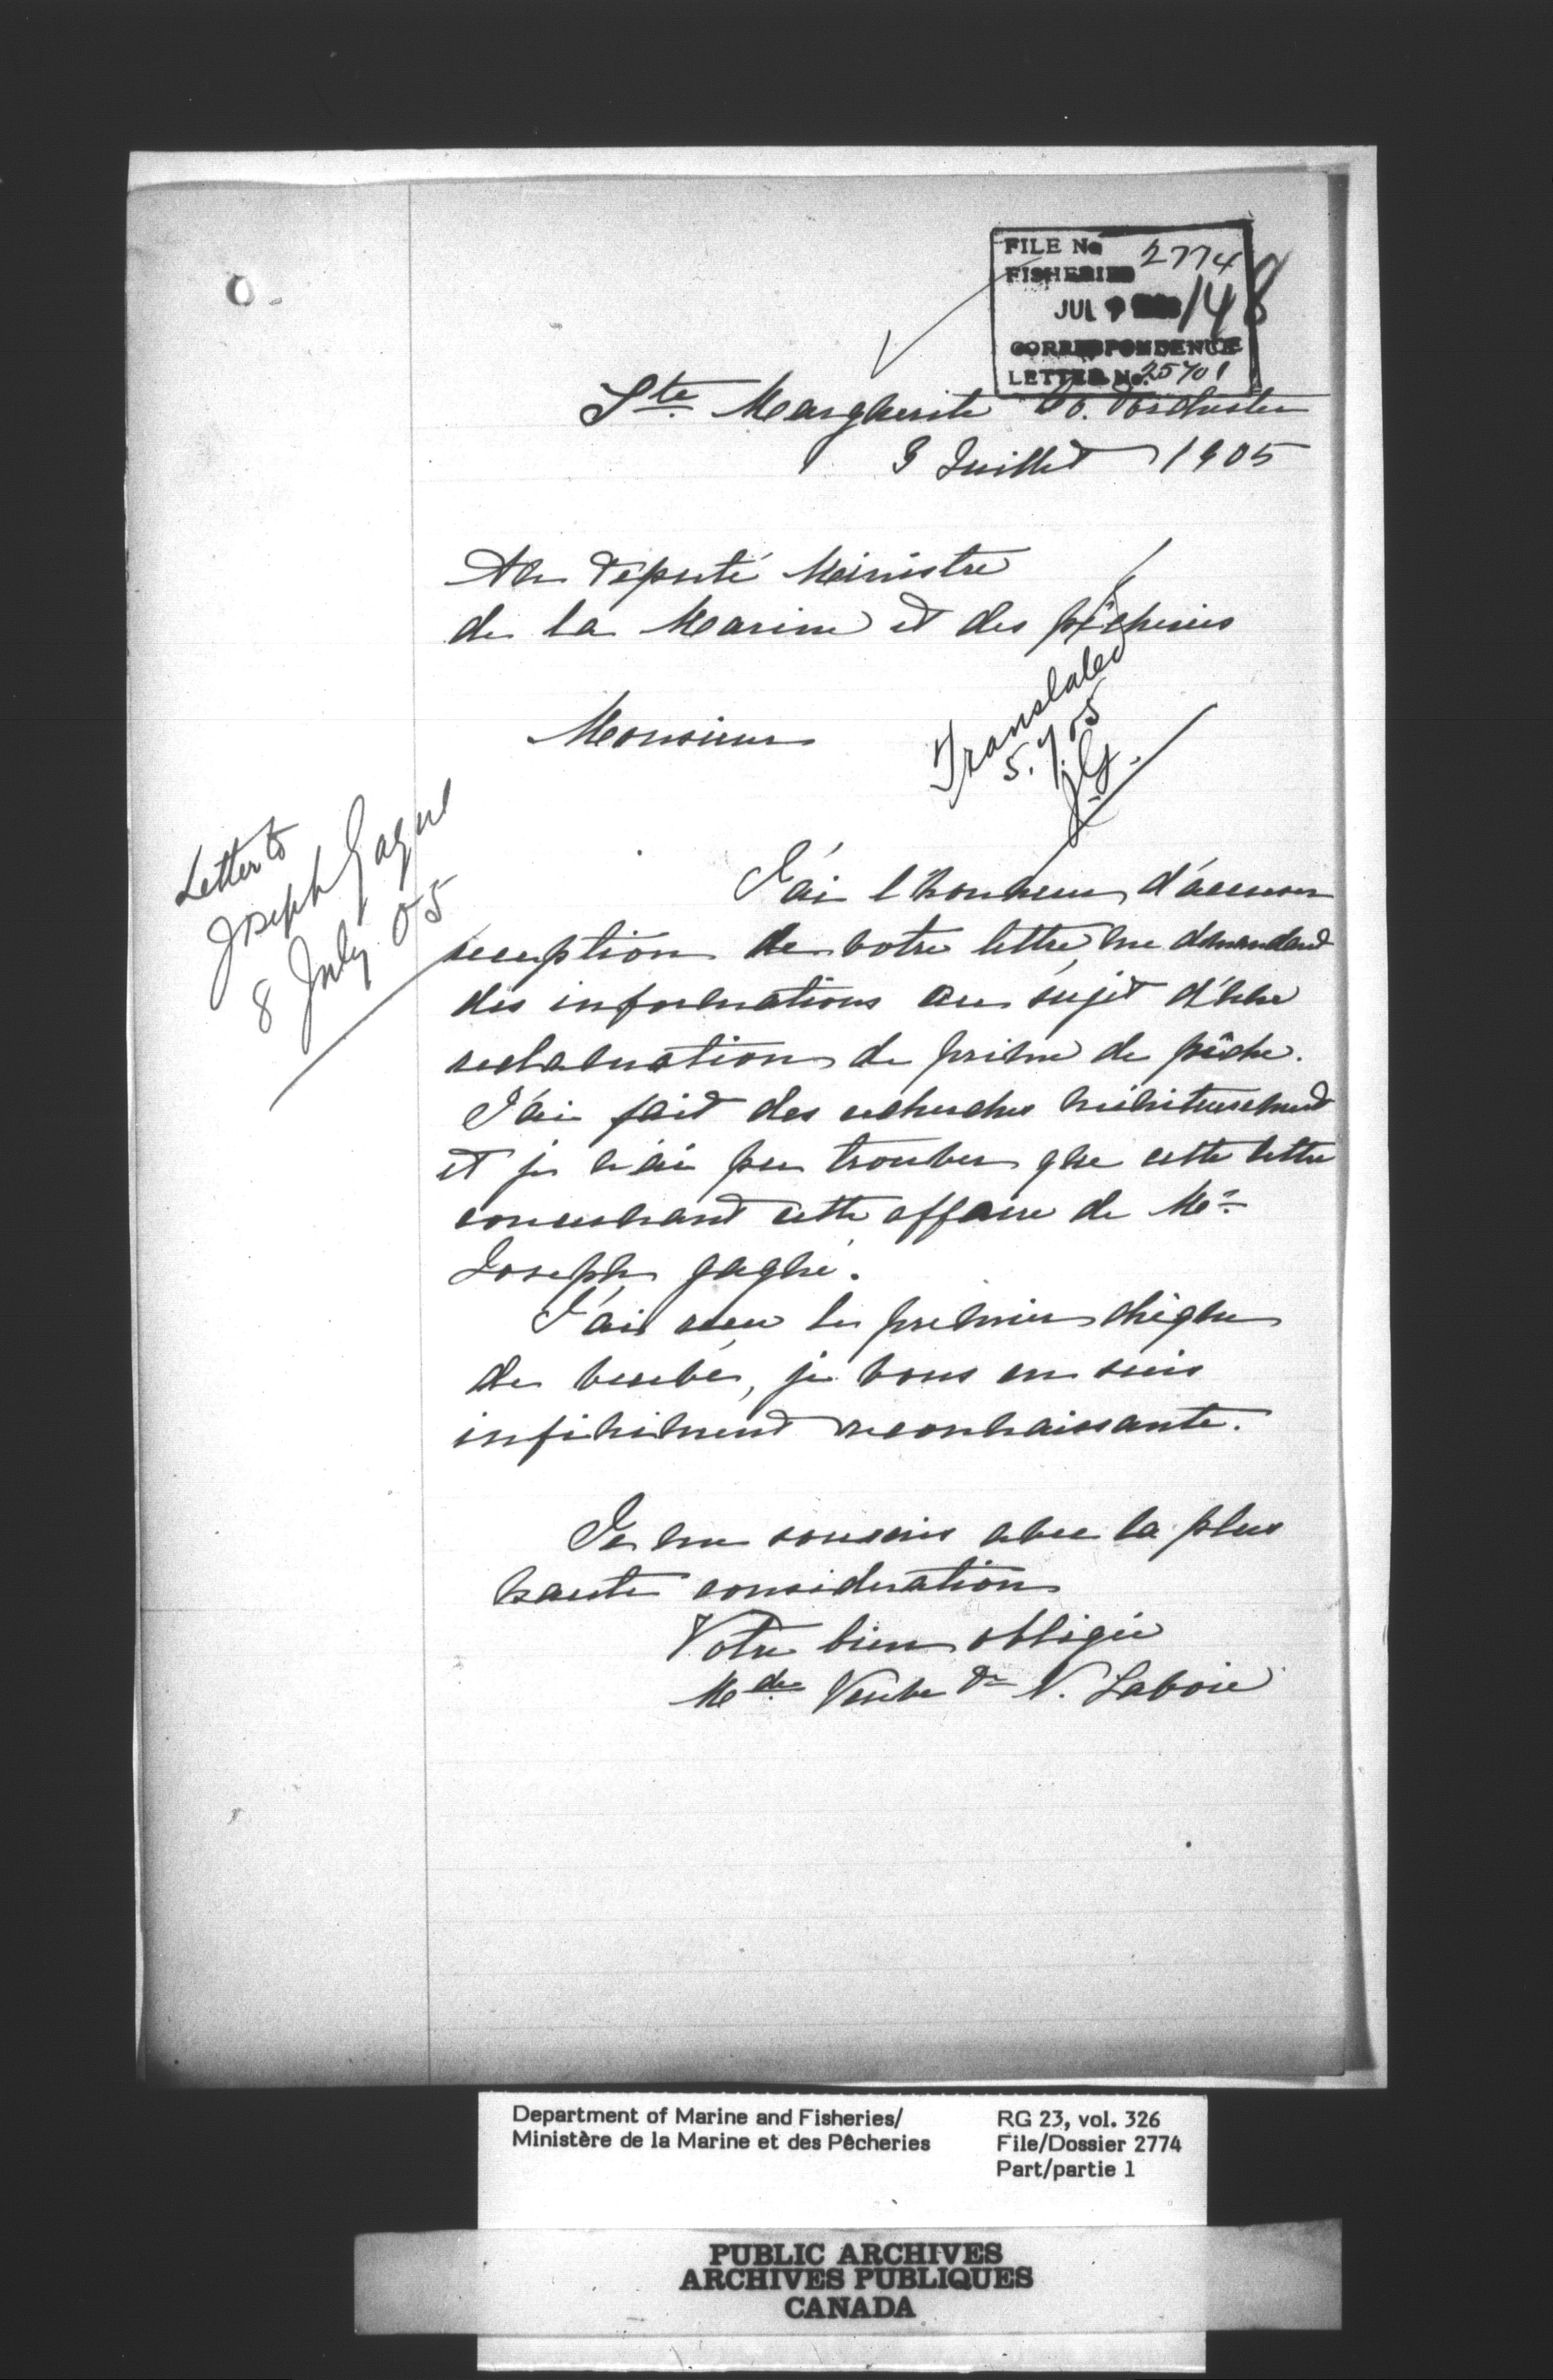 FILE No 2774
FISHERIES 148
JUL
CORRESPONDENCE
LETTER No. 25701
Ste Marguerite Co. Dorchester
3 Juillet 1905
Au Député Ministre
de la Marine et des pêcheries
Translated
5.7.05
J.G.
Monsieur
Letter to
Joseph Gagné
8 July 05
J'ai l'honneur d'accuser
reception de votre lettre, me demandant
des informations au sujet d'une
reclamation de prime de pêche.
J'ai fait des recherches minutieusement
et je n'ai pu trouver que cette lettre
concernant cette affaire de Mr
Joseph gagné.
J'ai recu le premier chèque
de, je vous en suis
infiniment reconnaissante.
Je me souscris avec la plus
haute consideration
Votre bien obligée
Mde Veuve Dr N. Lavoie
Department of Marine and Fisheries/
Ministère de la Marine et des Pêcheries
RG 23, vol. 326
File/Dossier 2774
Part/partie 1
PUBLIC ARCHIVES
ARCHIVES PUBLIQUES
CANADA